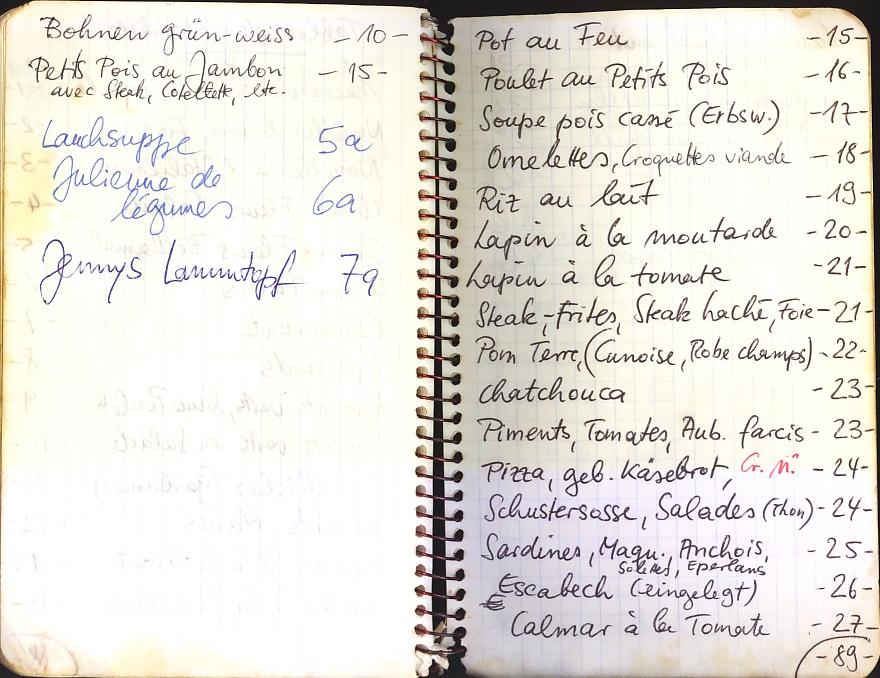 Bohnen grün-weiss - 10 -
Petits Pois au Jambon - 15 -
avec Steak, Cotellette, etc.
Lauchsuppe 5a
Julienne de
légumes 6a
Jennys Lammtopf 7a
Pot au Feu - 15 -
Poulet au Petits Pois - 16 -
Soupe pois cassé (Erbsw.) - 17
Omelettes, Croquettes viande - 18
Riz au lait - 19
Lapin à la moutarde - 20 -
Lapin à la tomate - 21 -
Steak-Frites, Steak haché, Foie - 21 -
Pom Terre, (Cunoise, Robe champs) - 22 -
Chatchouca - 23 -
Piments, Tomates, Aub. farcis - 23 -
Pizza, geb. Käsebrot, - 24 -
Schustersosse, Salades (Thon) - 24 -
Sardines, Maqu., Anchois, - 25 -
Solettes, Eperlans
Escabech (eingelegt) - 26 -
Calmar à la Tomate - 27 -
- 89 -